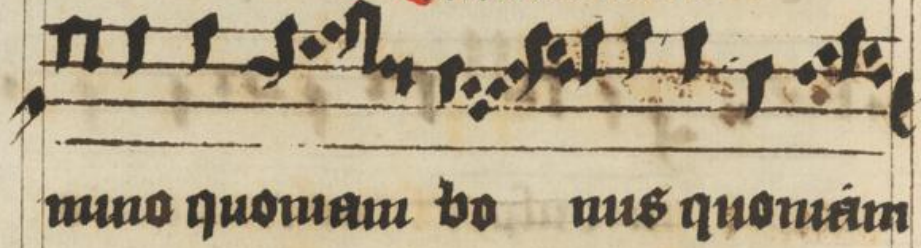 mino quoniam bo nus quoniam